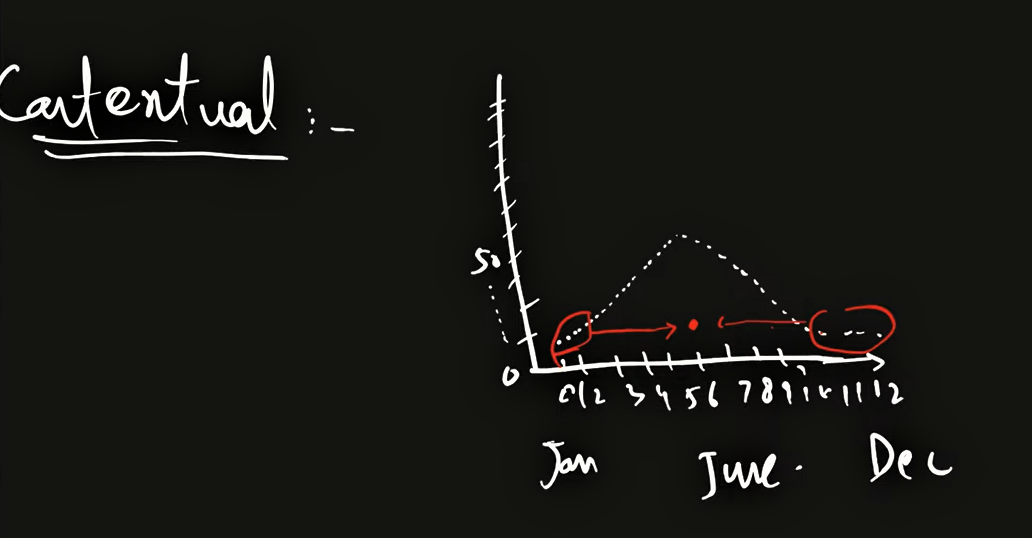 Contextual :-
50
0
01 2 3 4 5 6 7 8 9 10 11 12
Jan June. Dec